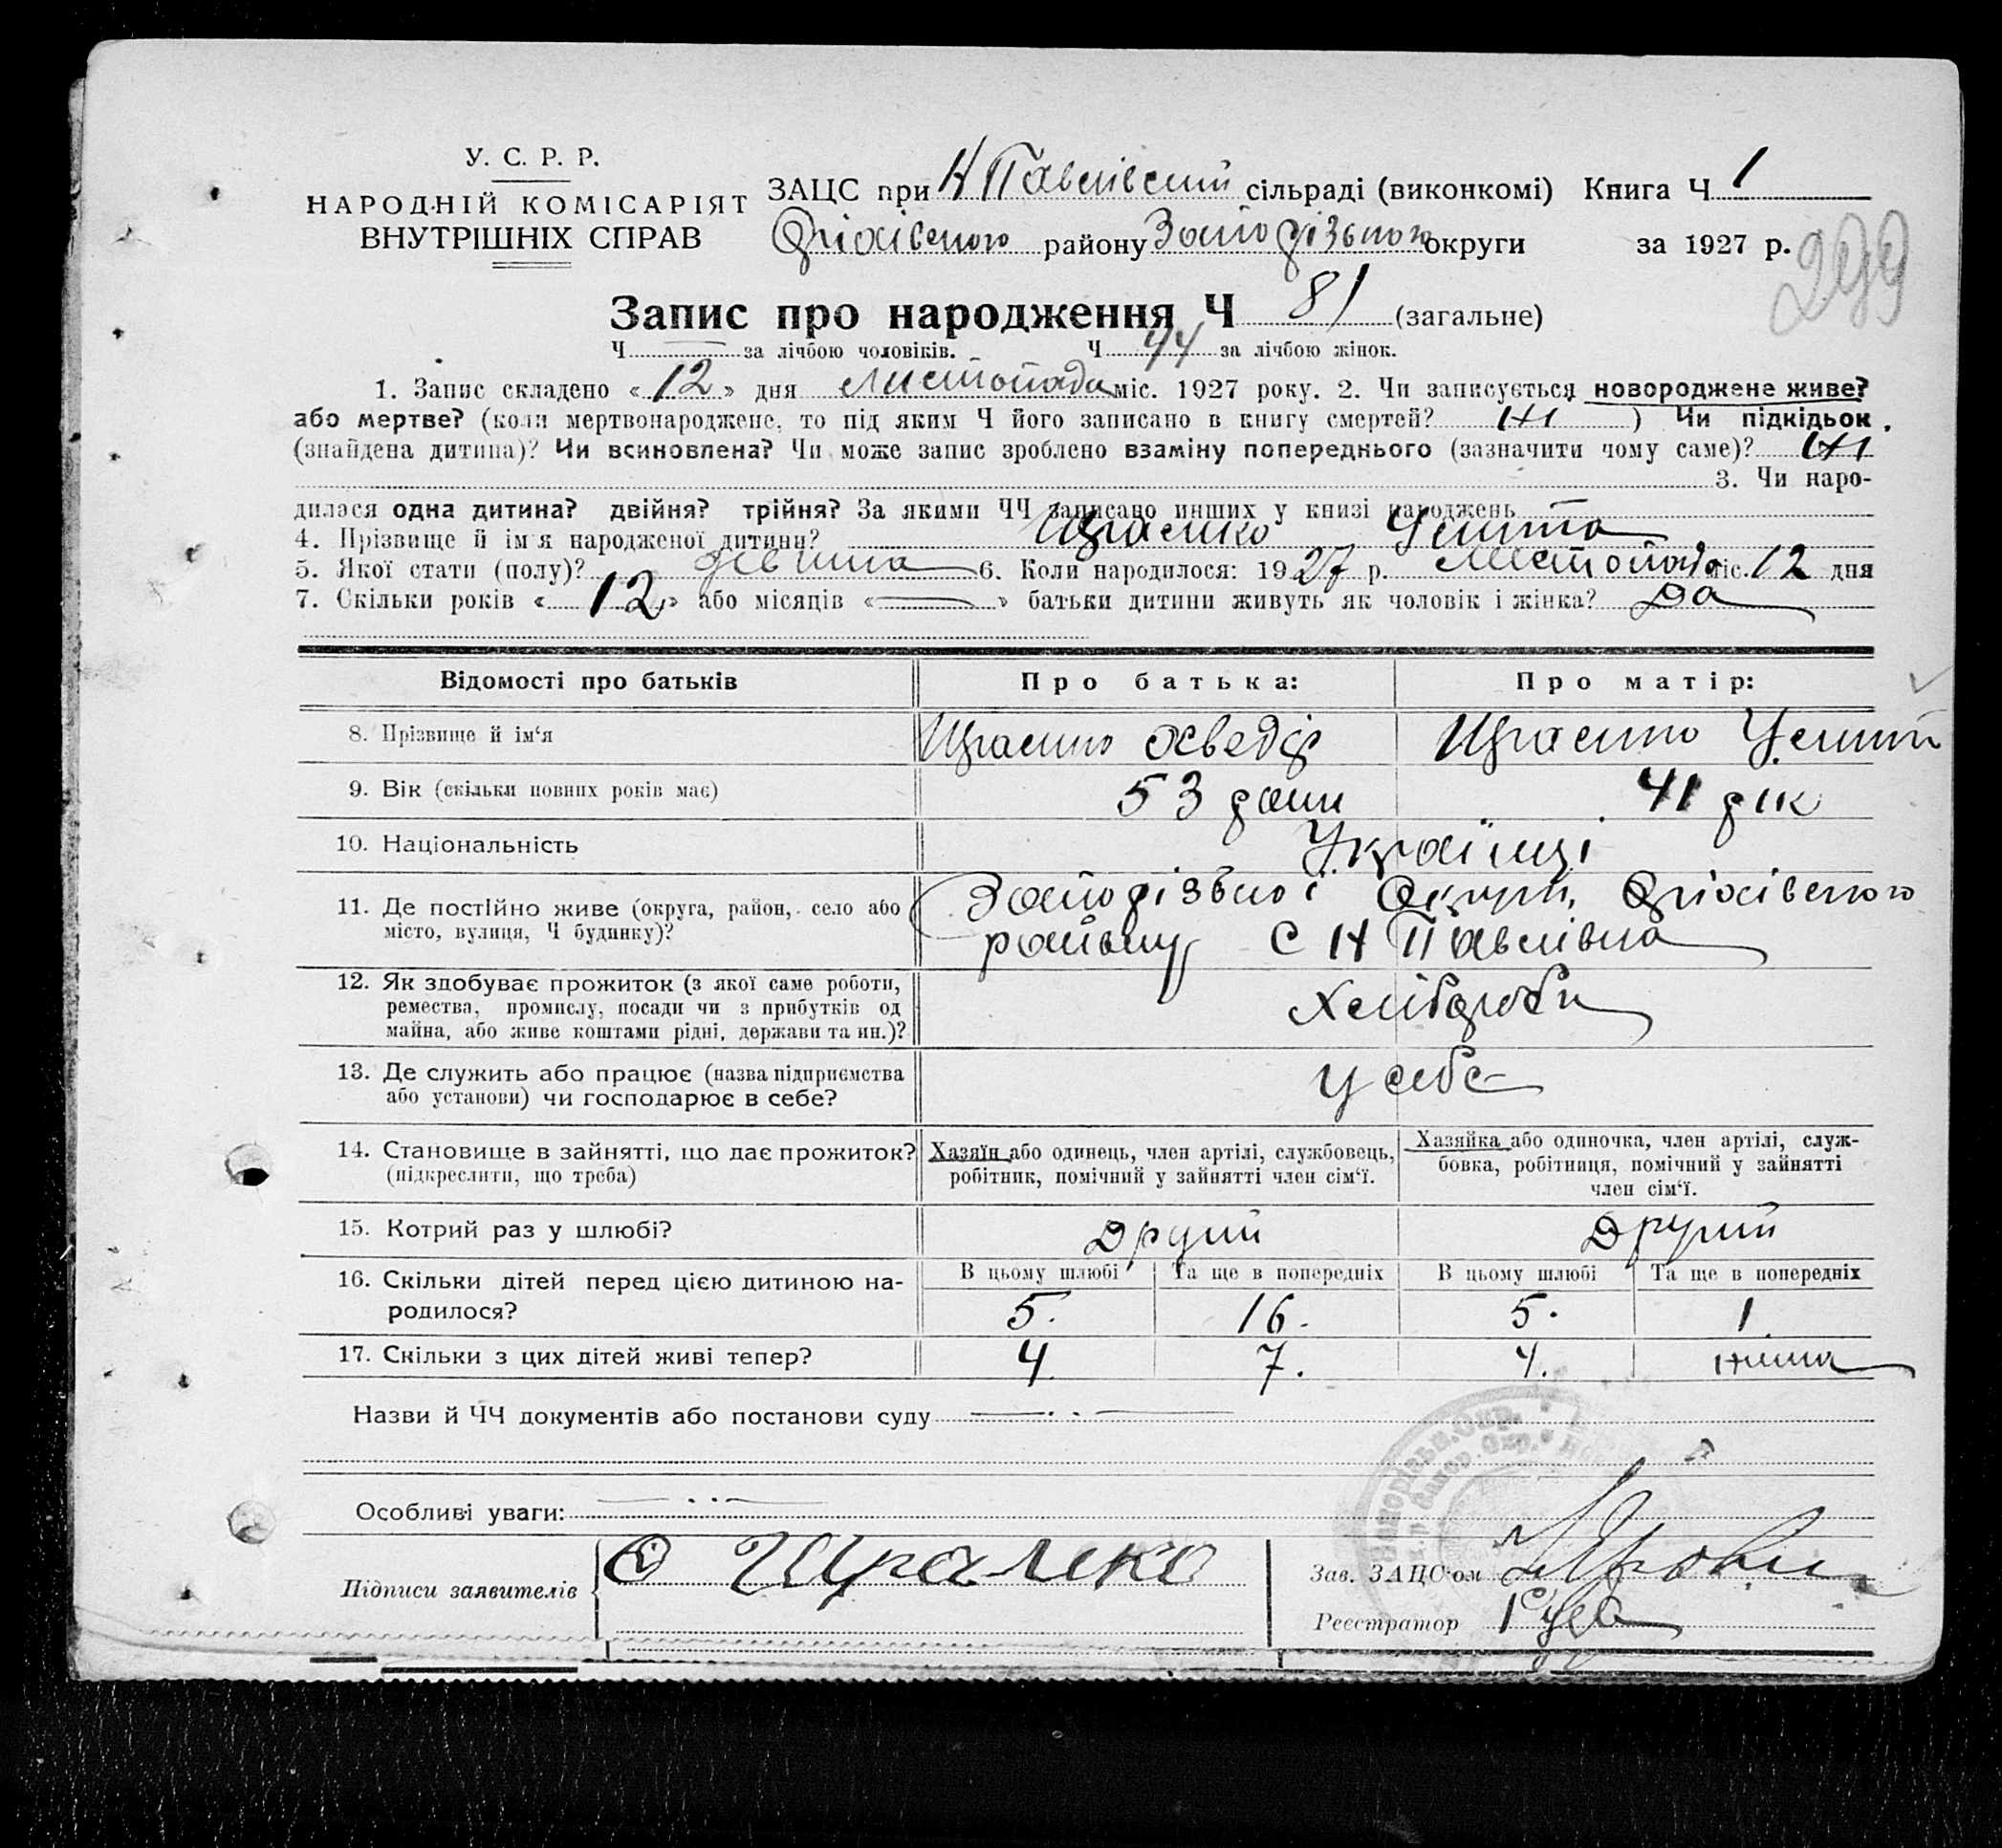 У. С. Р. Р.
НАРОДНІЙ КОМІСАРІЯТ
ВНУТРІШНІХ СПРАВ
ЗАЦС при Н Павлівский сільраді (виконкомі) Книга Ч 1
Оріхівського району Запорізького округи за 1927 р.
299
Запис про народження Ч 81 (загальне)
Ч — за лічбою чоловіків. Ч 44 за лічбою жінок.
1. Запис складено « 12 » дня листопада міс. 1927 року. 2. Чи записується новороджене живе?
або мертве? (коли мертвонароджене, то під яким Ч його записано в книгу смертей? ) Чи підкідьок
(знайдена дитина)? Чи всиновлена? Чи може запис зроблено взаміну попереднього (зазначити чому саме)?
3. Чи наро-
дилася одна дитина? двійня? трійня? За якими ЧЧ записано инших у книзі народжень
4. Прізвище й ім'я народженої дитини?
5. Якої стати (полу)? 6. Коли народилося: 1927 р. листопада міс. 12 дня
7. Скільки років « 12 » або місяців « — » батьки дитини живуть як чоловік і жінка? Да
Відомості про батьків Про батька: Про матір:
8. Прізвище й ім'я
9. Вік (скільки повних років має) 53 роки 41 рік
10. Національність Українці
11. Де постійно живе (округа, район, село або місто, вулиця, Ч будинку)? Запорізької Округи, Оріхівського
району С Н Павлівка
12. Як здобуває прожиток (з якої саме роботи,
ремества, промислу, посади чи з прибутків од
майна, або живе коштами рідні, держави та ин.)? Хлібороби
13. Де служить або працює (назва підприємства
або установи) чи господарює в себе? у себе
14. Становище в зайнятті, що дає прожиток?
(підкреслити, що треба)
Хазяїн або одинець, член артілі, службовець,
робітник, помічний у зайнятті член сім'ї.
Хазяйка або одиночка, член артілі, служ-
бовка, робітниця, помічний у зайнятті
член сім'ї.
15. Котрий раз у шлюбі? Другий Другий
16. Скільки дітей перед цією дитиною на-
родилося?
В цьому шлюбі Та ще в попередніх В цьому шлюбі Та ще в попередніх
5. 16. 5. 1.
17. Скільки з цих дітей живі тепер? 4 7. 4.
Назви й ЧЧ документів або постанови суду
Особливі уваги:
Підписи заявителів
Зав. ЗАЦС'ом
Реєстратор